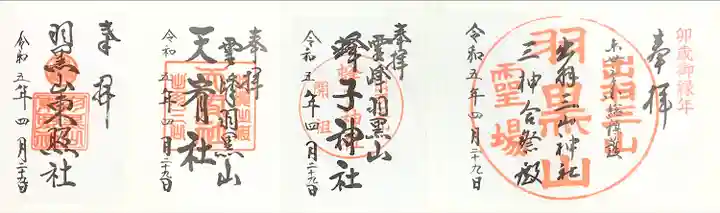 卯歳御縁年
奉拝
出羽三山神社
三神合祭殿
令和五年四月二十九日
出羽三山
羽黒山
霊場
奉拝
雲峰羽黒山
蜂子神社
令和五年四月二十九日
開祖
奉拝
雲峰羽黒山
天宥社
令和五年四月二十九日
奉拝
羽黒山東照社
令和五年四月二十九日